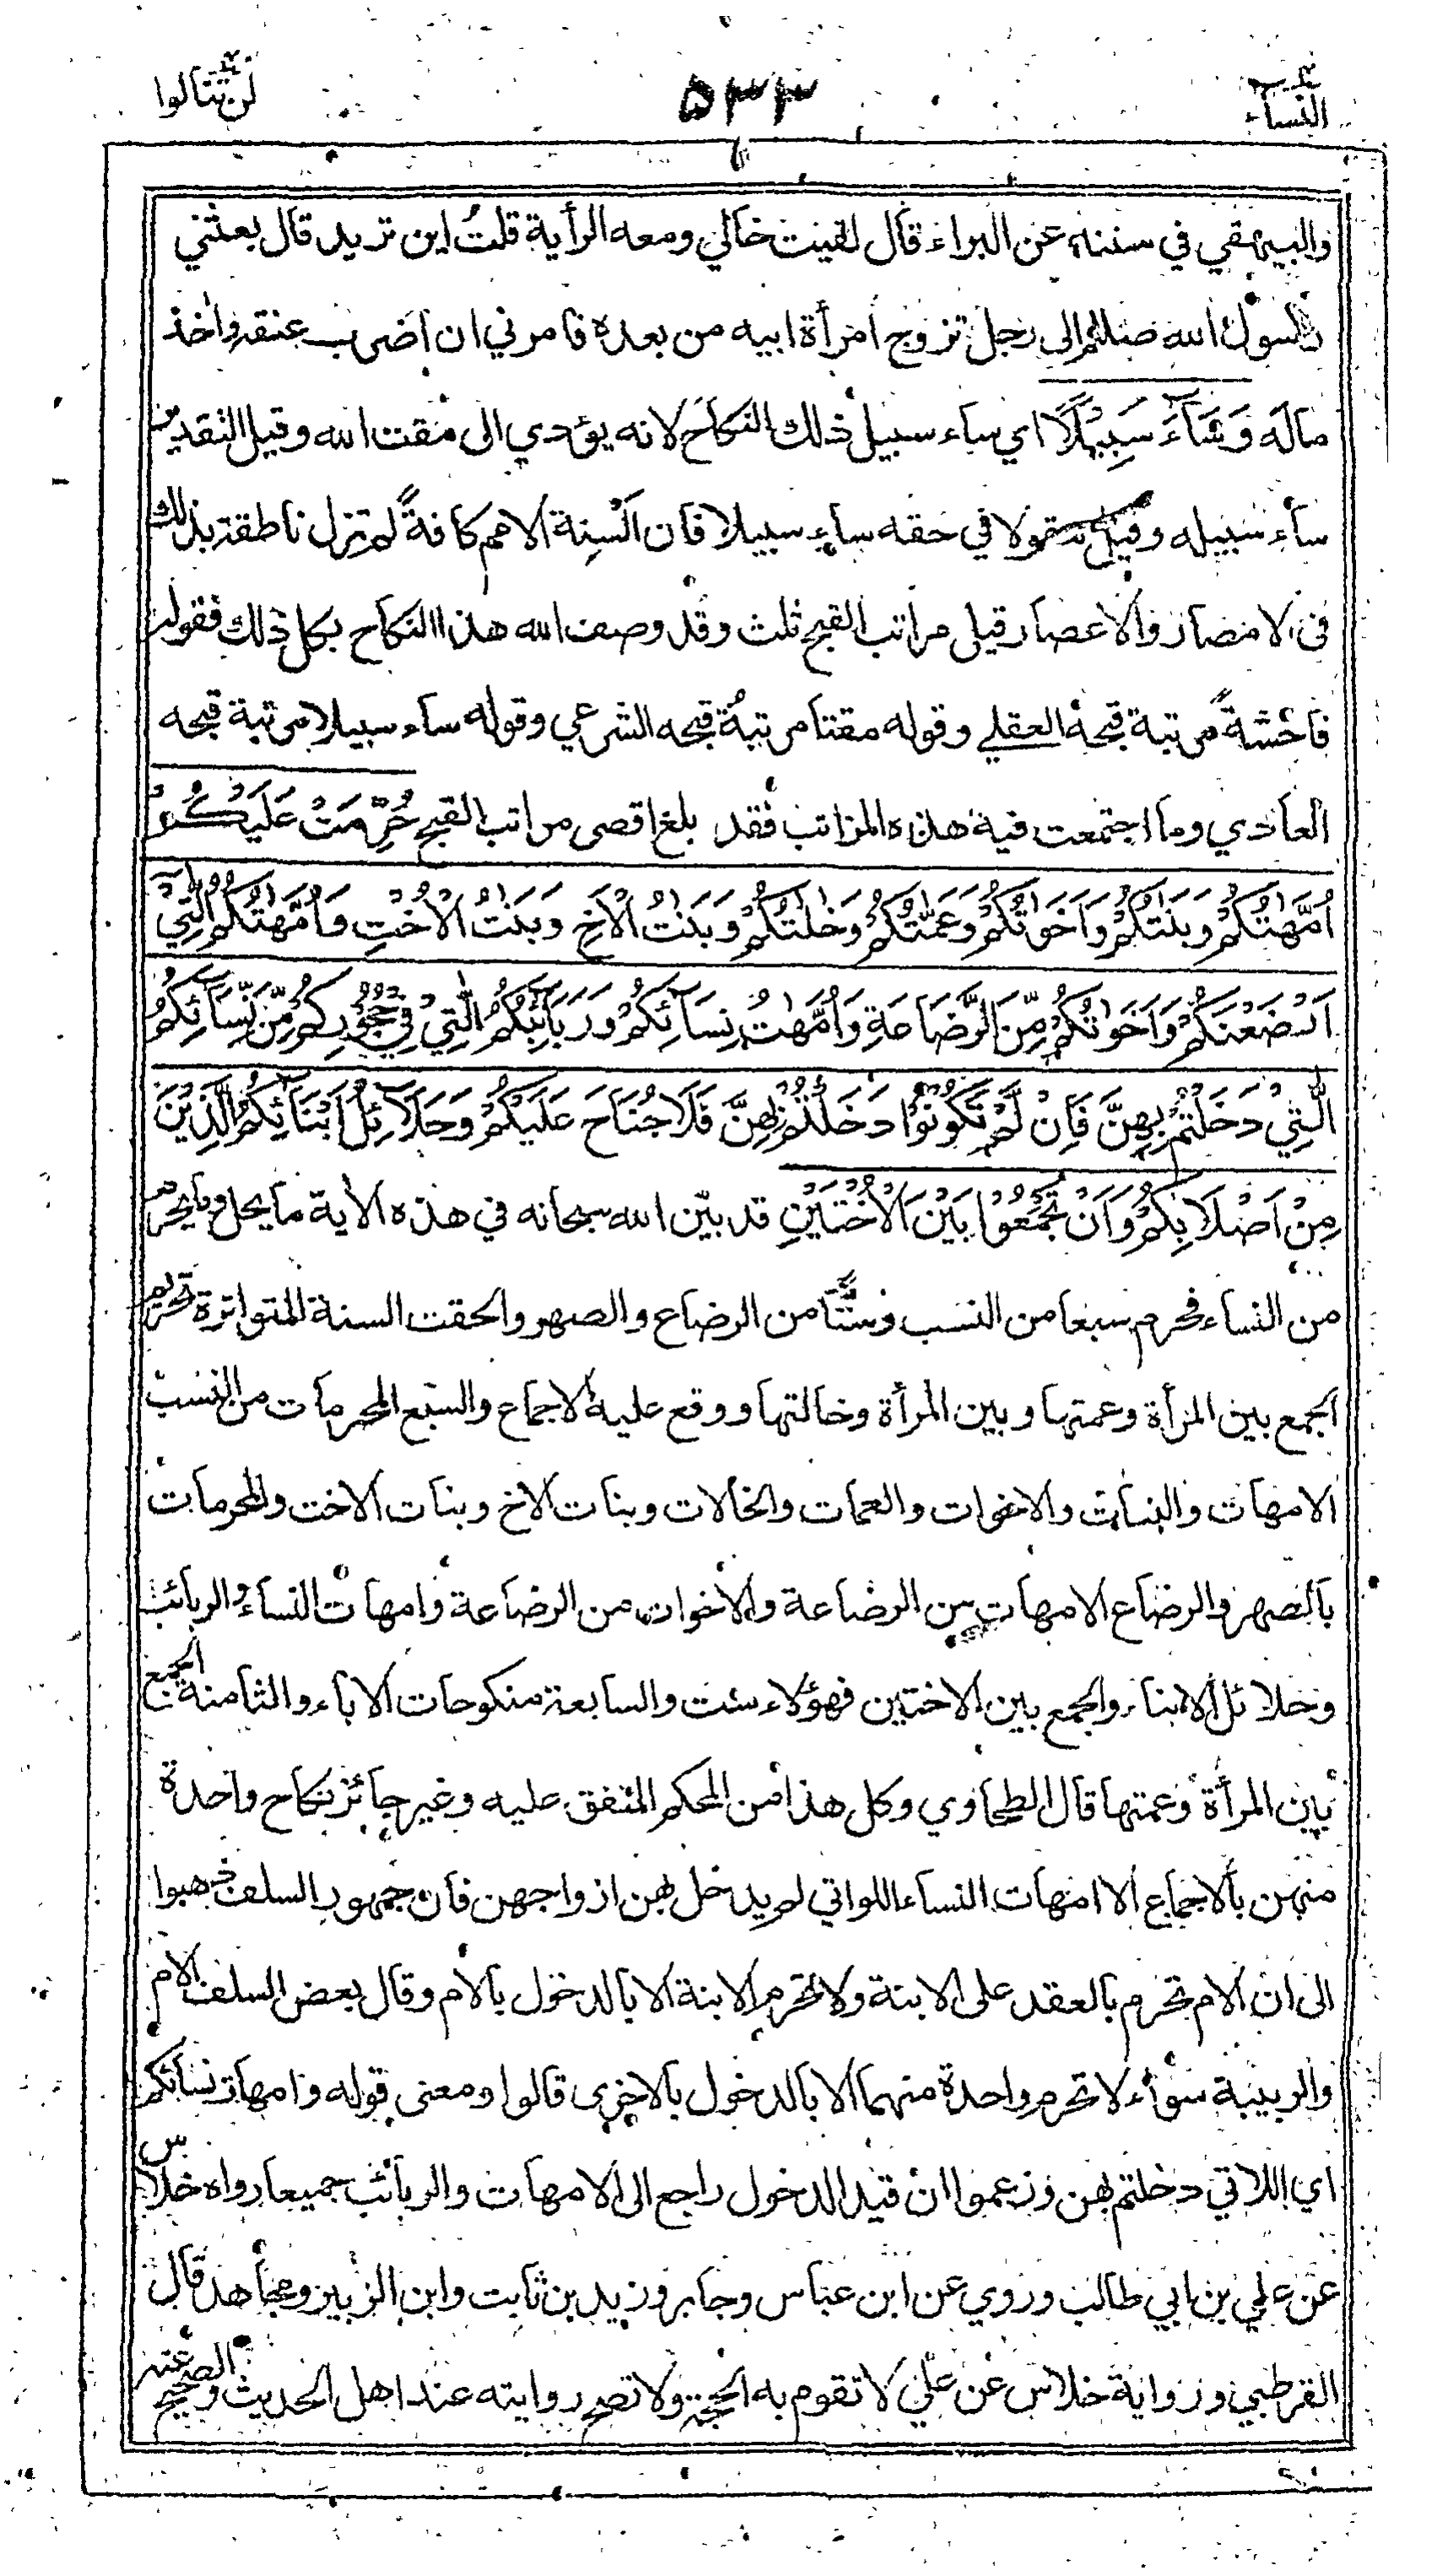 النساء ٥٣٣ لن تنالوا
والبيهقي في سننه عن البراء قال لقيت خالي ومعه الرأية قلتُ اين تريد قال بعثني
رسول الله صللم الى رجل تزوج امرأة ابيه من بعده فامرني ان اضرب عنقه واخذ
ماله وَسَآءَ سَبِيْلًا اي ساء سبيل ذلك النكاح لانه يؤدي الى مقت الله وقيل التقدير
ساء سبيله وقيل مقولا في حقه ساء سبيلا فان ألسنة الامم كافةً لم تزل ناطقة بذلك
في الامصار والاعصار قيل مراتب القبح ثلث وقد وصف الله هذا النكاح بكل ذلك فقوله
فاحشةً مرتبة قبحه العقلي وقوله مقتا مرتبةُ قبحه الشرعي وقوله ساء سبيلا مرتبة قبحه
العادي وما اجتمعت فيه هذه المراتب فقد بلغ اقصى مراتب القبح حُرِّمَتْ عَلَيْكُمْ
اُمَّهٰتُكُمْ وَبَنٰتُكُمْ وَاَخَوٰتُكُمْ وَعَمّٰتُكُمْ وَخٰلٰتُكُمْ وَبَنٰتُ الْاَخِ وَبَنٰتُ الْاُخْتِ وَاُمَّهٰتُكُمُ الّٰتِيْٓ
اَرْضَعْنَكُمْ وَاَخَوٰتُكُمْ مِّنَ الرَّضَاعَةِ وَاُمَّهٰتُ نِسَآئِكُمْ وَرَبَآئِبُكُمُ الّٰتِيْ فِيْ حُجُوْرِكُمْ مِّنْ نِّسَآئِكُمُ
الّٰتِيْ دَخَلْتُمْ بِهِنَّ فَاِنْ لَّمْ تَكُوْنُوْا دَخَلْتُمْ بِهِنَّ فَلَا جُنَاحَ عَلَيْكُمْ وَحَلَآئِلُ اَبْنَآئِكُمُ الَّذِيْنَ
مِنْ اَصْلَابِكُمْ وَاَنْ تَجْمَعُوْا بَيْنَ الْاُخْتَيْنِ قد بيّن الله سبحانه في هذه الأية ما يحل وما يحرم
من النساء فحرم سبعا من النسب وستّا من الرضاع والصهر والحقت السنة المتواترة تحريم
الجمع بين المرأة وعمتها وبين المرأة وخالتها ووقع عليه الاجماع والسبع المحرمات من النسب
الامهات والبنات والاخوات والعمات والخالات وبنات الاخ وبنات الاخت والمحرمات
بالصهر والرضاع الامهات من الرضاعة والاخوات من الرضاعة وامهات النساء والربائب
وحلائل الابناء والجمع بين الاختين فهؤلاء ست والسابعة منكوحات الاباء والثامنة الجمع
بين المرأة وعمتها قال الطحاوي وكل هذا من المحكم المتفق عليه وغير جائز نكاح واحدة
منهن بالاجماع الا امهات النساء اللواتي لم يدخل بهن ازواجهن فان جمهور السلف ذهبوا
الى ان الام تحرم بالعقد على الابنة ولا تحرم الابنة الا بالدخول بالام وقال بعض السلف الام
والربيبة سواء لا تحرم واحدة منهما الا بالدخول بالاخرى قالوا ومعنى قوله وامهات نسائكم
اي اللاتي دخلتم بهن وزعموا ان قيد الدخول راجع الى الامهات والربائب جميعا رواه خلاس
عن علي بن ابي طالب وروي عن ابن عباس وجابر وزيد بن ثابت وابن الزبير ومجاهد قال
القرطبي ورواية خلاس عن علي لا تقوم به الحجة ولا تصح روايته عند اهل الحديث والصحيح عنه